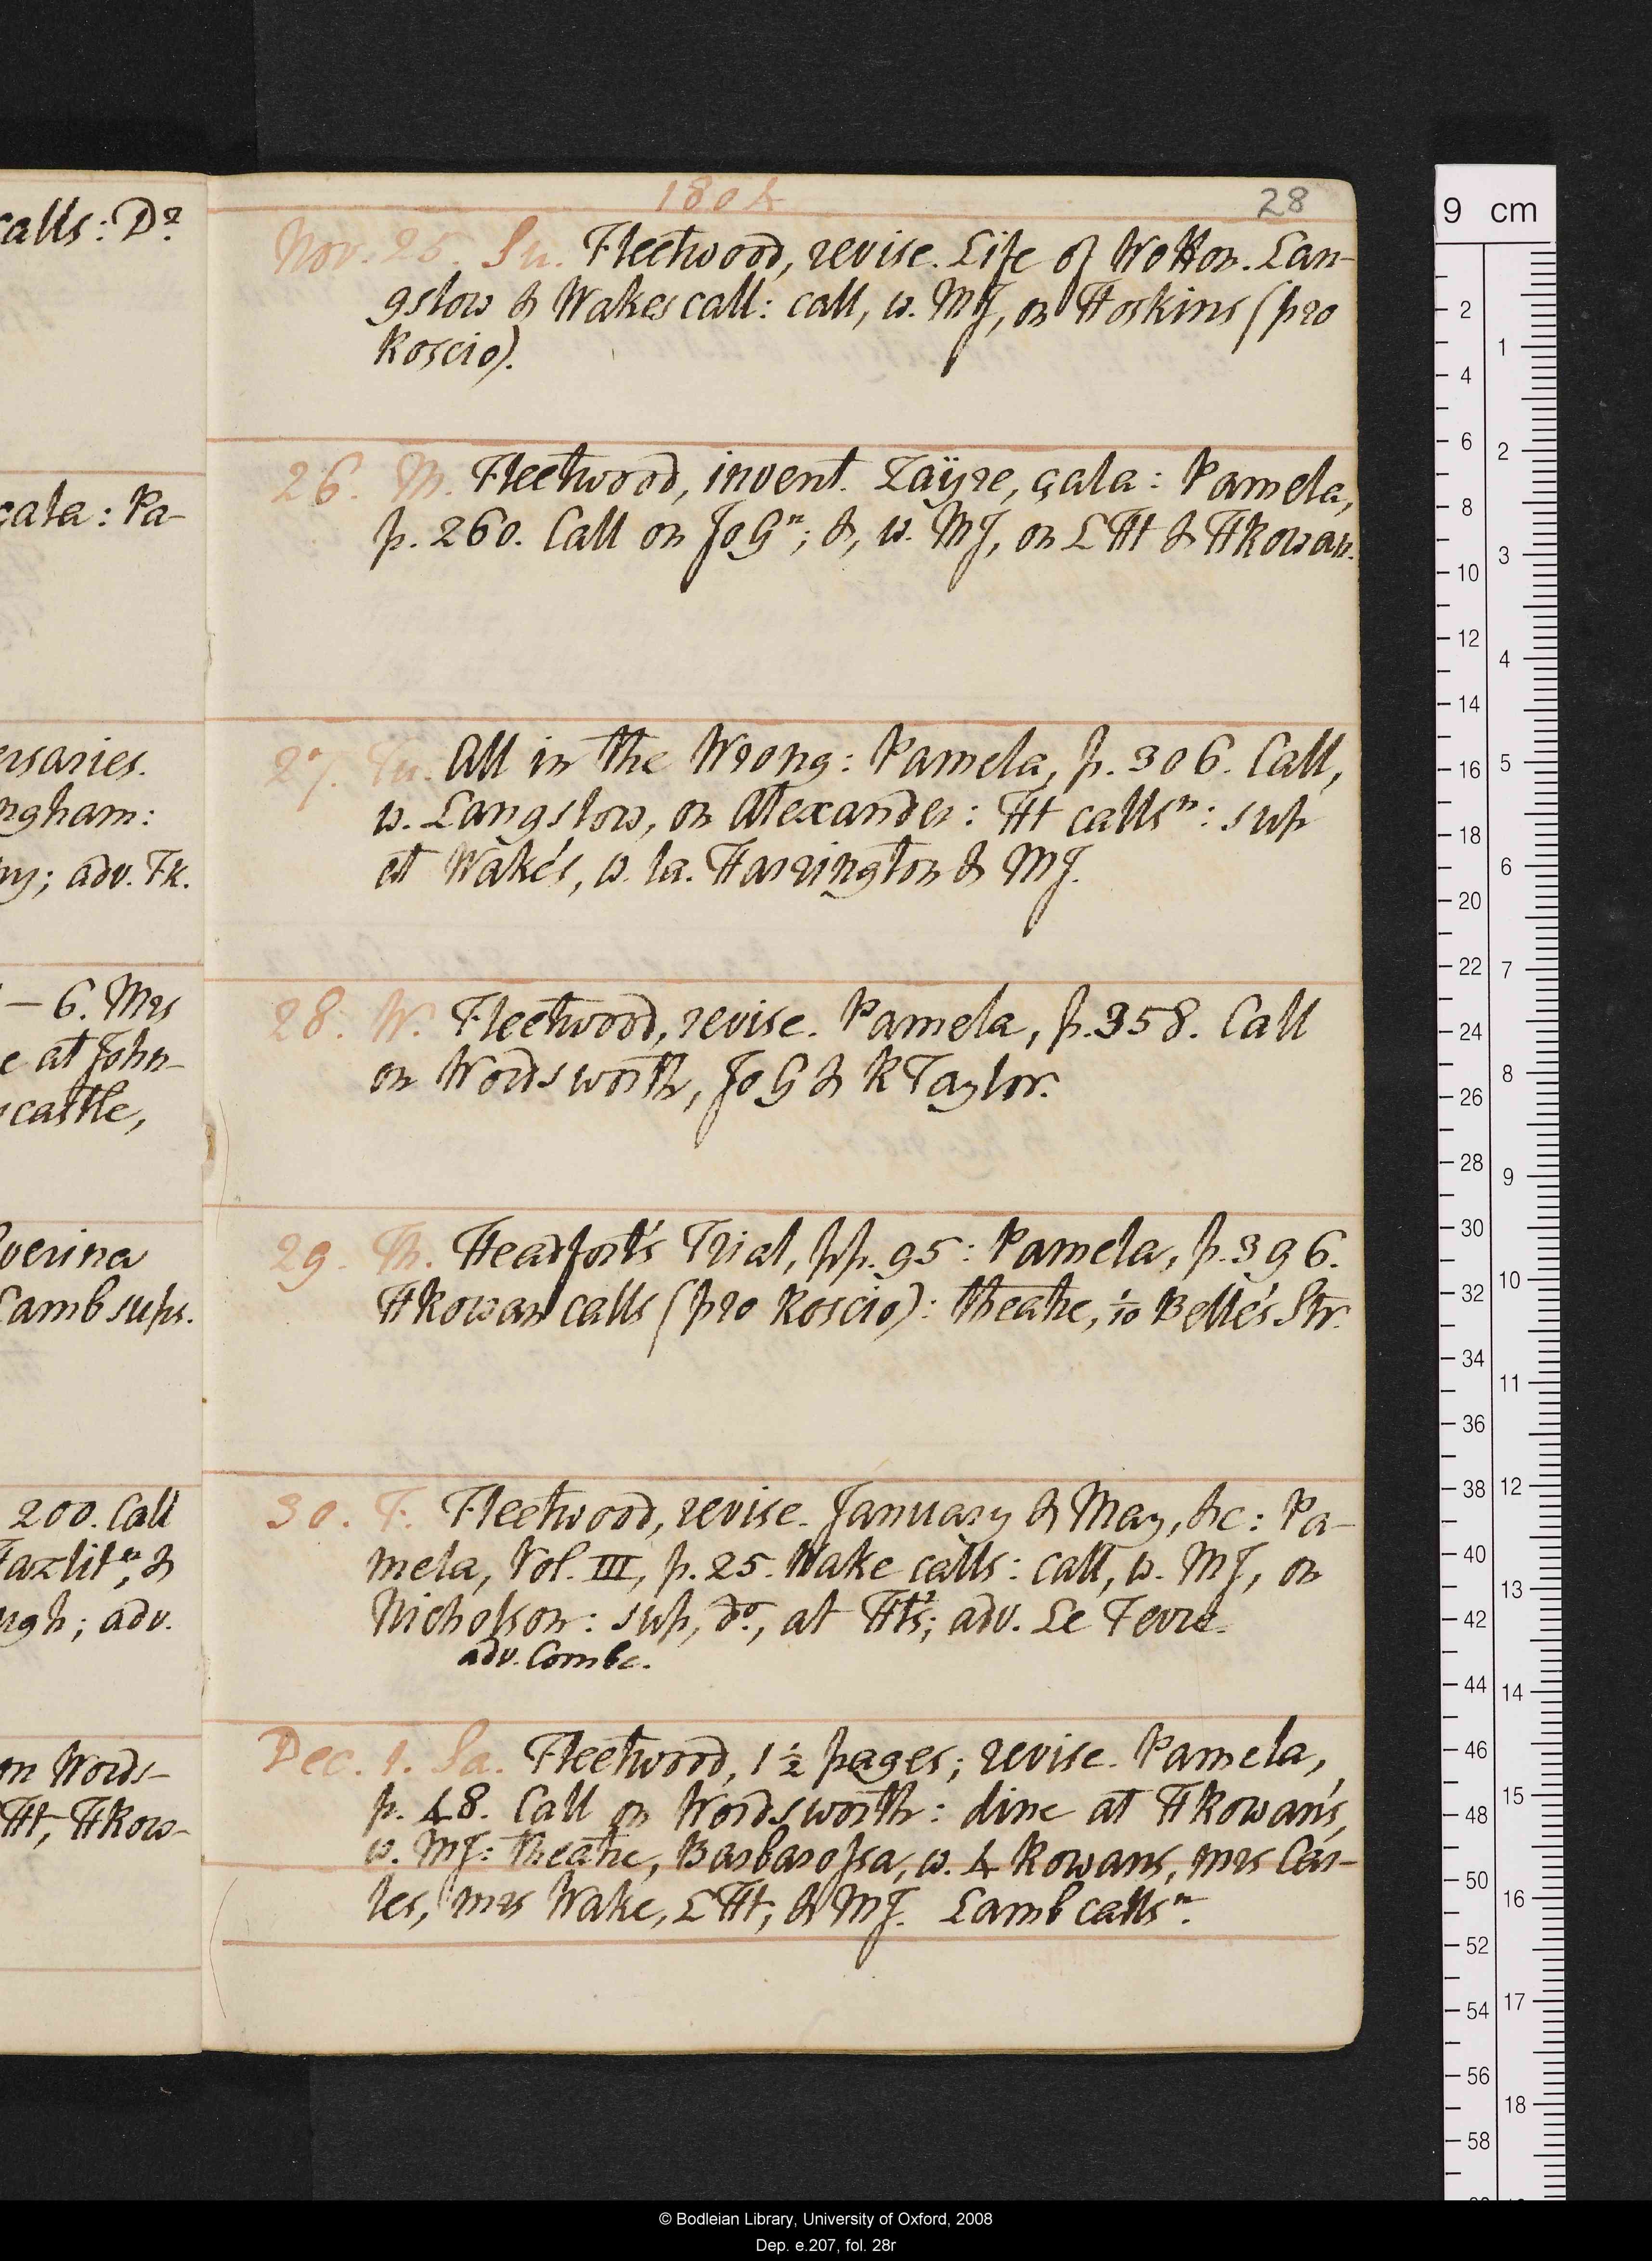 calls: Dr
cala: Pa-
ersaries.
ngham:
ny; adv. Tk.
– 6. Mrs
e at John-
castle,
verina
Lamb sups.
200. Call
azlitn; &
ugh; adv.
on Words-
Ht, HRow-
1804
28
Nov. 25. Su. Fleetwood, revise. Life of Wotton. Lan-
gslow & Wakes call: call, w. MJ, on Hoskins (pro
Roscio).
26. M. Fleetwood, invent. Zaÿre, çala: Pamela,
p. 260. Call on JoGn; &, w. MJ, on LHt & HRowan.
27. Tu. All in the Wrong: Pamela, p. 306. Call,
w. Langslow, on Alexander: Ht callsn: sup
at Wake's, w. la. Harrington & MJ.
28. W. Fleetwood, revise. Pamela, p. 358. Call
on Wordsworth, JoG & RTaylor.
29. Th. Headfort's Trial, pp. 95: Pamela, p. 396.
HRowan calls (pro Roscio): theatre, 1/10 Belle's Str.
30. F. Fleetwood, revise. January & May, &c: Pa-
mela, Vol. III, p. 25. Wake calls: call, w. MJ, on
Nicholson: sup, do, at Ht's; adv. Le Fevre.
adv. Combe.
Dec. 1. Sa. Fleetwood, 1 ½ pages; revise. Pamela,
p. 48. Call on Wordsworth: dine at HRowan's,
w. MJ: theatre, Barbarossa, w. 4 Rowans, mrs Car-
les, mrs Wake, LHt, & MJ. Lamb callsn.
9 cm
2
4
6
8
10
12
14
16
18
20
22
24
26
28
30
32
34
36
38
40
42
44
46
48
50
52
54
56
58
1
2
3
4
5
6
7
8
9
10
11
12
13
14
15
16
17
18
© Bodleian Library, University of Oxford, 2008
Dep. e.207, fol. 28r